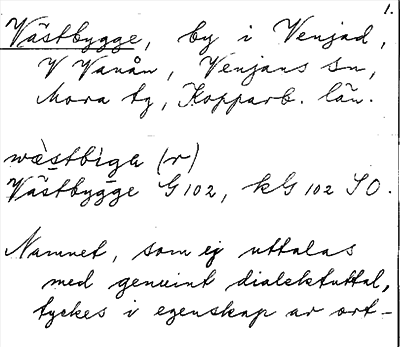 1.
Västbygge, by i Venjad,
V Vanån, Venjans sn,
Mora tg, Kopparb. län.
wæ̀stbìga (r)
Västbygge G102, kG 102 SO.
Namnet, som ej uttalas
med genuint dialektuttal,
tyckes i egenskap av ort-